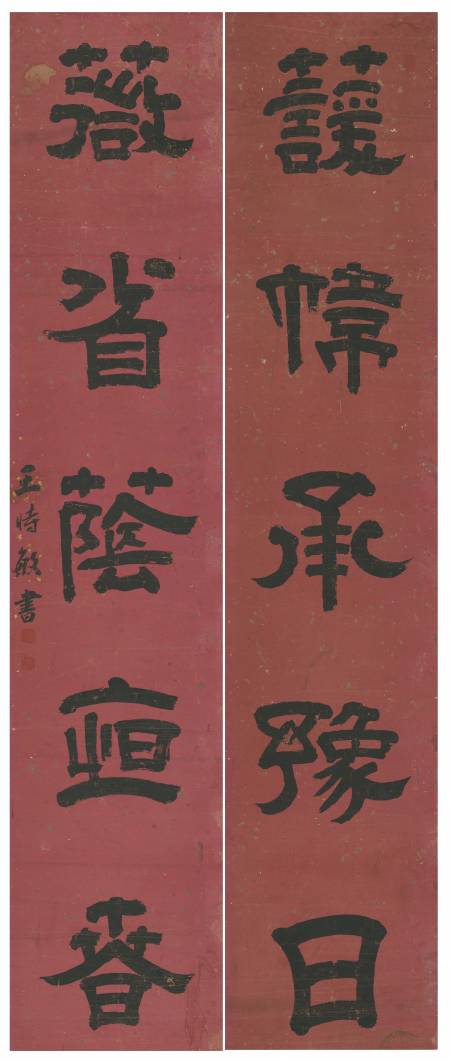 蘐幃承豫日
薇省蔭恒春
王時敏書